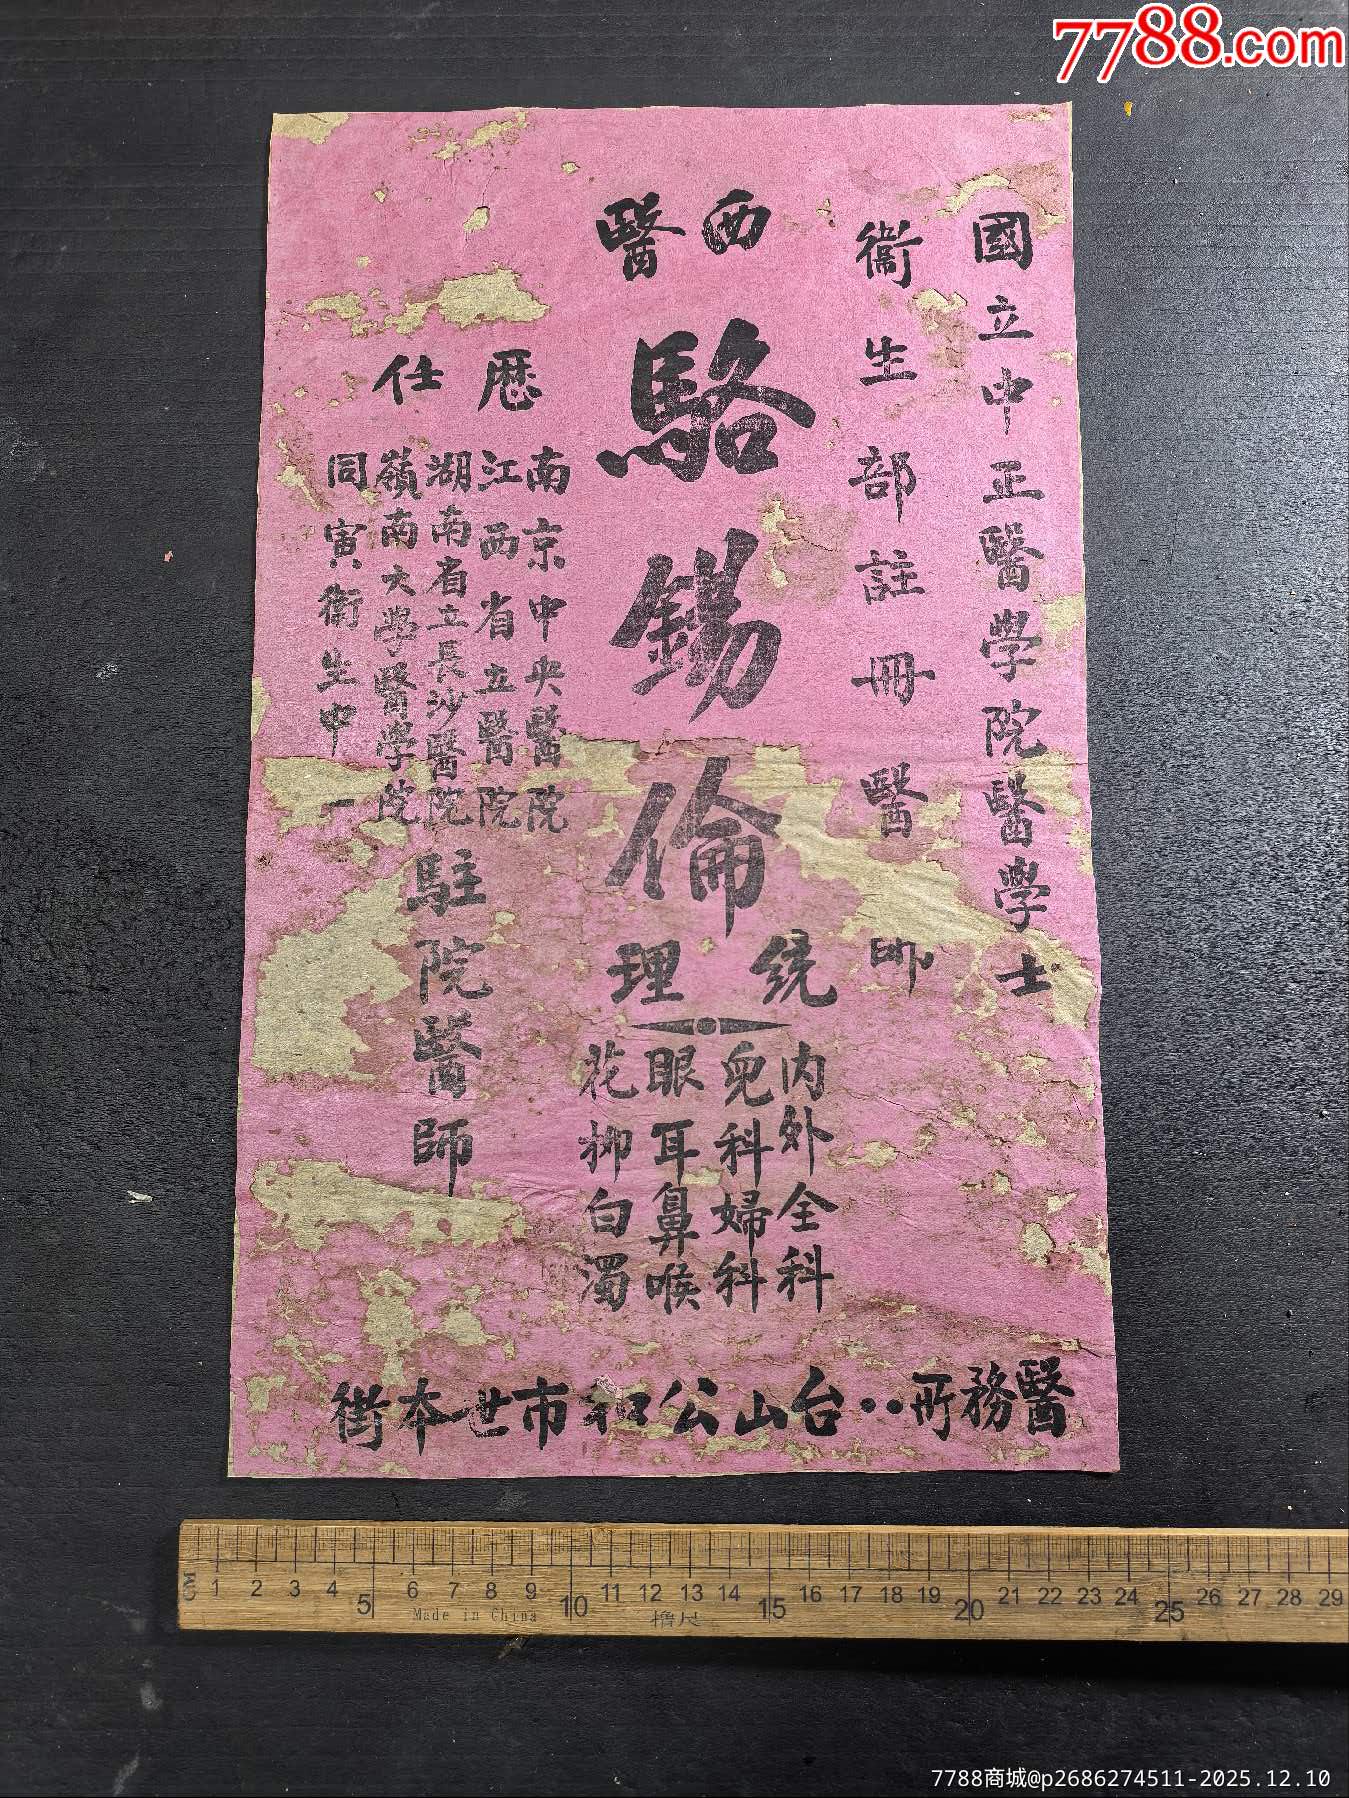 7788.com
國立中正醫學院醫學士
衞生部註冊醫師
西醫
駱錫倫
統理
内外全科
兒科婦科
眼耳鼻喉
花柳白濁
歷任
南京中央醫院
江西省立醫院
湖南省立長沙醫院
嶺南大學醫學院
同寅衛生中
駐院醫師
醫務所：台山公和市世本街
CM 1 2 3 4 5 6 7 8 9 10 11 12 13 14 15 16 17 18 19 20 21 22 23 24 25 26 27 28 29
Made in China
7788商城@p2686274511-2025.12.10